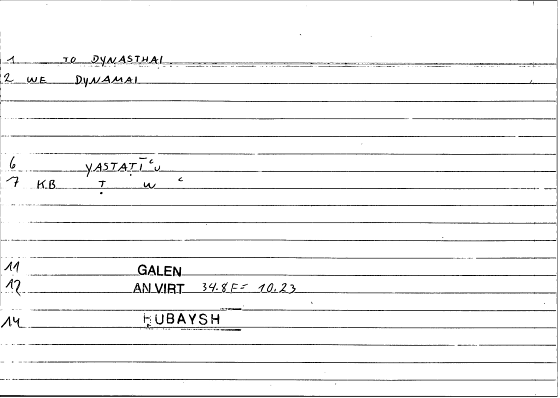 1 TO DYNASTHAI
2 WE DYNAMAI
6 YASTAṬĪʿU
7 K.B. Ṭ W ʿ
11 GALEN
12 AN VIRT 34.8 F = 10.23
14 ḤUBAYSH